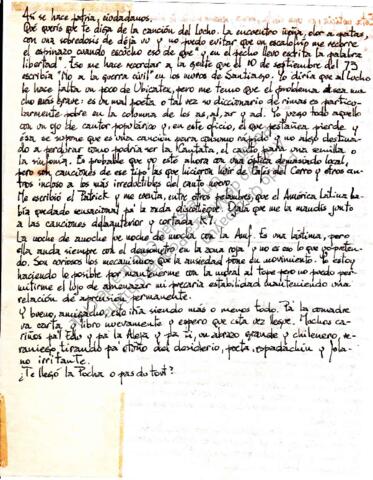 Así se hace patria, ciudadanos.
Qué querís que te diga de la canción del Lucho. La encuentro vieja, olor a gatas,
con una sobredosis de déjà vu y no puedo evitar que un escalofrío me recorra
el espinazo cuando escucho eso de que "y en el pecho llevo escrita la palabra
libertad". Eso me hace recordar a la gente que el 10 de septiembre del 73
escribía "No a la guerra civil" en los muros de Santiago. Yo diría que al Lucho
le hace falta un poco de Unicate, pero me temo que el problema sea mu-
cho más grave: es un mal poeta o tal vez su diccionario de rimas es particu-
larmente pobre en la columna de los as, al, ar y ad. Yo juzgo todo aquello
con un ojo de cautor populário y en este oficio, el que pestañea pierde y
esa se supone que es una canción para consumo rápido y no algo destina-
do a perdurar como podría ser la Kantata, el cauto para una semilla o
la sinfonía. Es probable que yo esté ahora con una óptica demasiado local,
pero son canciones de ese tipo las que hicieron huir de Café del Cerro y otros cen-
tros incluso a los más irreductibles del cauto nuevo.
Me escribió el Patrick y me cuenta, entre otros pelambres, que el América Latina ha-
bía quedado sensacional pa' la onda discothèque. Ojalá que me la mandís junto
a las canciones del anterior y cortada X1.
La noche de anoche no de noche con la Auf. Es una lástima, pero
ella anda siempre con el densímetro en la zona roja y no es eso lo que preten-
do. Son curiosos los mecanismos que la ansiedad pone en movimiento. Yo estoy
haciendo lo posible por mantenerme con la moral al tope pero no puedo per-
mitirme el lujo de amenazar mi precaria estabilidad manteniendo una
relación de aprensión permanente.
Y bueno, amigacho, esto iría siendo más o menos todo. Pa' la comadre
va carta y libro nuevamente y espero que esta vez llegue. Muchos ca-
riños pa'l Edu y pa' la Aleja y pa' ti, un abrazo grande y chilenero, ve-
raniego tirando pa' otoño del desiderio, poeta, espadachín y fula-
no irritante.
¿Te llegó la Pocha o pas du tout?